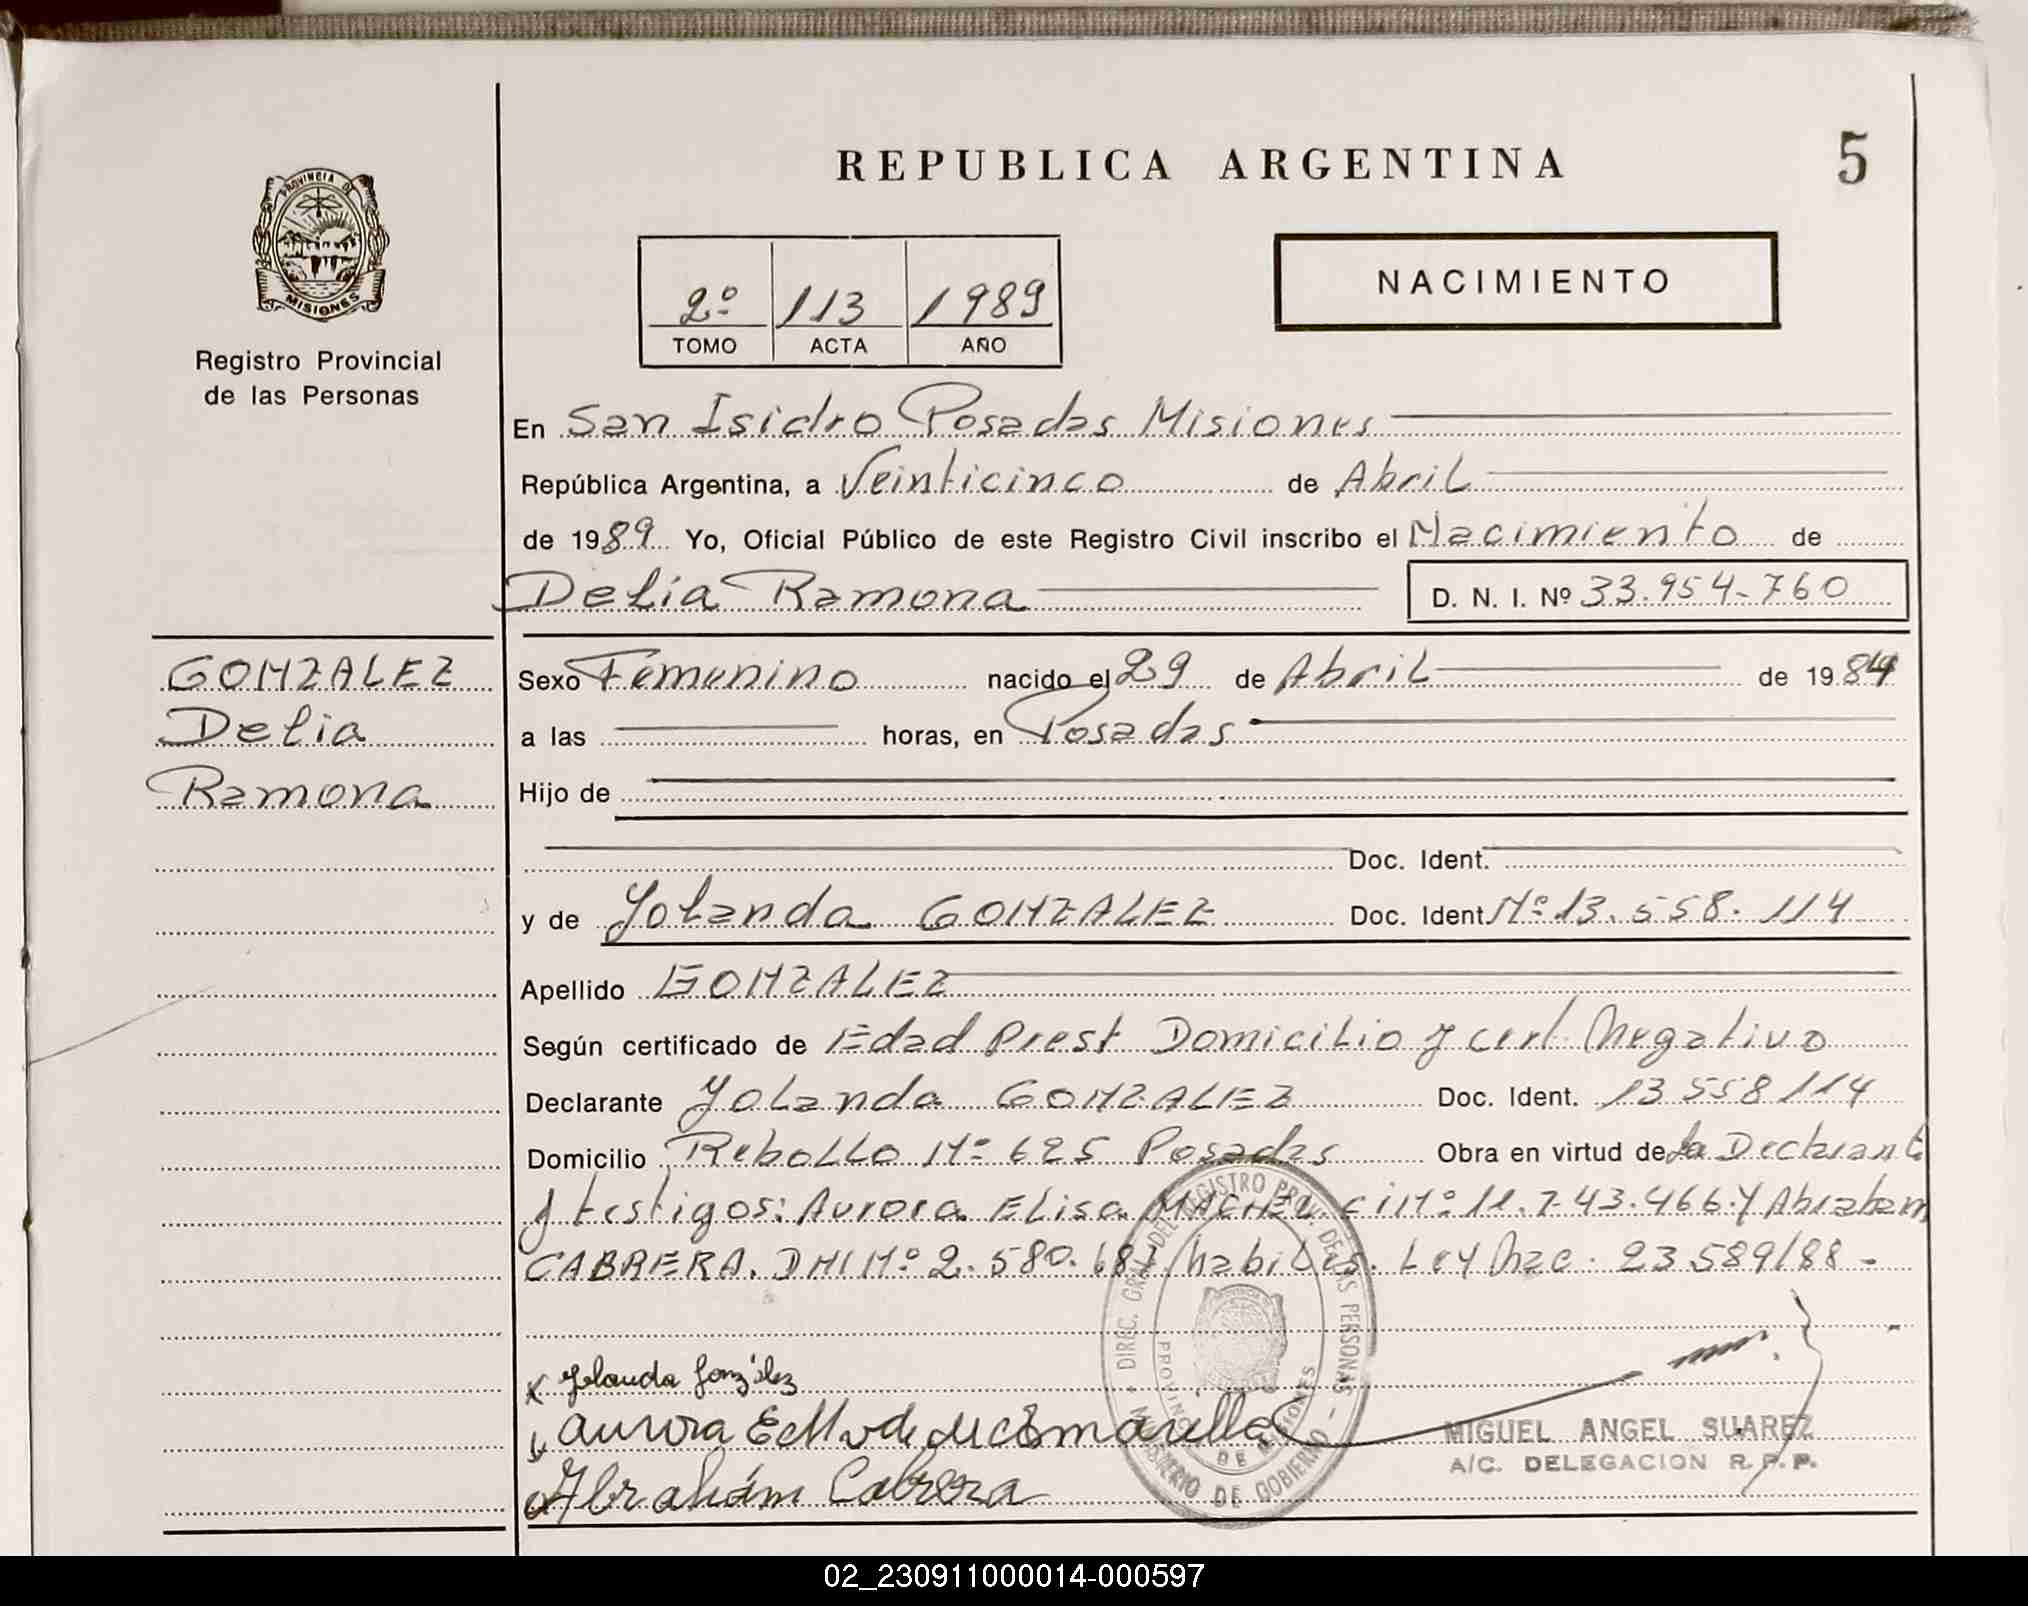 REPUBLICA ARGENTINA
5
PROVINCIA DE
MISIONES
Registro Provincial
de las Personas
2º 113 1989
TOMO ACTA AÑO
NACIMIENTO
En San Isidro Posadas Misiones
República Argentina, a Veinticinco de Abril
de 1989 Yo, Oficial Público de este Registro Civil inscribo el Nacimiento de
Delia Ramona D. N. I. Nº 33.954.760
GONZALEZ
Delia
Ramona
Sexo Femenino nacido el 29 de Abril de 1984
a las horas, en Posadas
Hijo de
Doc. Ident.
y de Yolanda GONZALEZ Doc. Ident Nº 13.558.114
Apellido GONZALEZ
Según certificado de Edad Prest Domicilio y cert. Negativo
Declarante Yolanda GONZALEZ Doc. Ident. 13 558 114
Domicilio Rebollo Nº 625 Posadas Obra en virtud de la Declarante
y testigos: Aurora Elisa MACIEL ci Nº 11.743.466 Y Abraham
CABRERA. DNI Nº 2.580.681 habiles. Ley Nac. 23.589/88 -
DIREC. GRAL. DEL REGISTRO PROV. DE LAS PERSONAS
MINISTERIO DE GOBIERNO
PROVINCIA DE MISIONES
x Yolanda González
Aurora
Abrahám Cabrera
MIGUEL ANGEL SUAREZ
A/C. DELEGACION R. P. P.
02_230911000014-000597